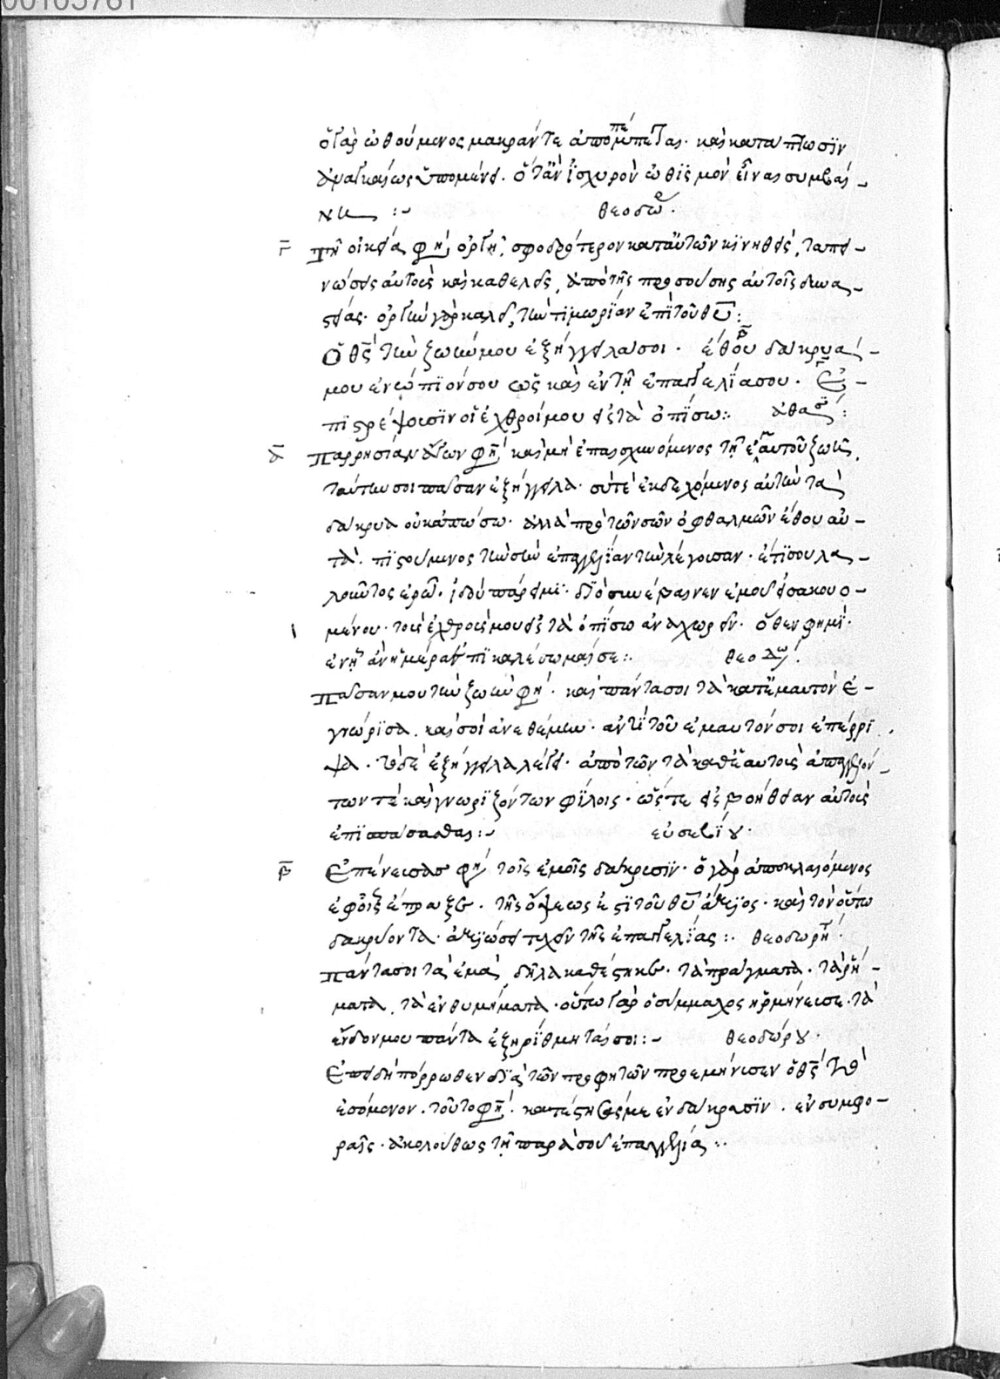 00105761
ὁ γὰρ ὠθούμενος μακράν τε ἀποπέμπεται. καὶ κατάπτωσιν
ἀναγκαίως ὑπομένει. ὅταν ἰσχυρὸν ὠθισμὸν εἶναι συμβαί-
νει :- θεοδώρ
γ τῇ οἰκείᾳ φησὶ ὀργῇ, σφοδρότερον κατ' αὐτῶν κινηθεὶς, ταπει-
νώσεις αὐτοὺς καὶ καθελεῖς, ἀπὸ τῆς προσούσης αὐτοῖς δυνα-
στείας. ὀργὴν γὰρ καλεῖ, τὴν τιμωρίαν ἐπὶ τοῦ θυ :
Ὁ θς τὴν ζωήν μου ἐξήγγειλά σοι. ἔθου δάκρυά
μου ἐνώπιόν σου ὡς καὶ ἐν τῇ ἐπαγγελίᾳ σου. Ἐ-
πιστρέψουσιν οἱ ἐχθροί μου εἰς τὰ ὀπίσω :. ἀθανασίου :
α Παρρησίαν ἄγων φησὶ καὶ μὴ ἐπαισχυνόμενος τῇ ἑαυτοῦ ζωῇ,
ταύτην σοι πᾶσαν ἐξήγγειλα. σύ τε ἐκδεχόμενος αὐτὴν τὰ
δάκρυα οὐκ ἀπώσω. ἀλλὰ πρὸ τῶν σῶν ὀφθαλμῶν ἔθου αὐ-
τά. πιστούμενος τὴν σὴν ἐπαγγελίαν τὴν λέγουσαν. ἔτι σου λα-
λοῦντος ἐρῶ. ἰδοὺ πάρειμι. διὸ συνέβαινεν ἐμοῦ εἰσακουο-
μένου. τοὺς ἐχθρούς μου εἰς τὰ ὀπίσω ἀναχωρεῖν. ὅθεν φημί.
ἐν ᾗ ἂν ἡμέρᾳ ἐπικαλέσωμαί σε :. θεοδώρ.
Πᾶσάν μου τὴν ζωὴν φησί. καὶ πάντα σοι τὰ κατ' ἐμαυτὸν ἐ-
γνώρισα. καὶ σοὶ ἀνεθέμην. ἀντὶ τοῦ ἐμαυτόν σοι ἐπέρρι
ψα. τὸ δὲ ἐξήγγειλα λέγει. ἀπὸ τῶν τὰ καθ' ἑαυτοὺς ἀπαγγελόν-
των τε καὶ γνωριζόντων φίλοις. ὥστε εἰς βοήθειαν αὐτοὺς
ἐπισπάσασθαι :- εὐσεβίου.
β Ἐπένευσας φησὶ τοῖς ἐμοῖς δάκρυσιν. ὁ γὰρ ἀποκλαιόμενος
ἐφ' οἷς ἔπραξε. τῆς ὄψεως ἐστὶ τοῦ θυ ἄξιος. καὶ τὸν οὕτω
δακρύοντα. ἀξιώσει τυχεῖν τῆς ἐπαγγελίας :. θεοδωρήτ.
Πάντα σοι τὰ ἐμὰ, δῆλα καθέστηκε. τὰ πράγματα. τὰ ῥή-
ματα, τὰ ἐνθυμήματα. οὕτω γὰρ ὁ σύμμαχος ἡρμήνευσε. τὰ
ἔνδον μου πάντα ἐξηρίθμηταί σοι :- θεοδώρου.
Ἐπειδὴ πόρρωθεν διὰ τῶν προφητῶν προεμήνυσεν ὁ θς τὸ
ἐσόμενον. τοῦτο φησί. κατέστησές με ἐν δάκρυσιν. ἐν συμφο-
ραῖς. ἀκολούθως τῇ παρὰ σοῦ ἐπαγγελίᾳ :.